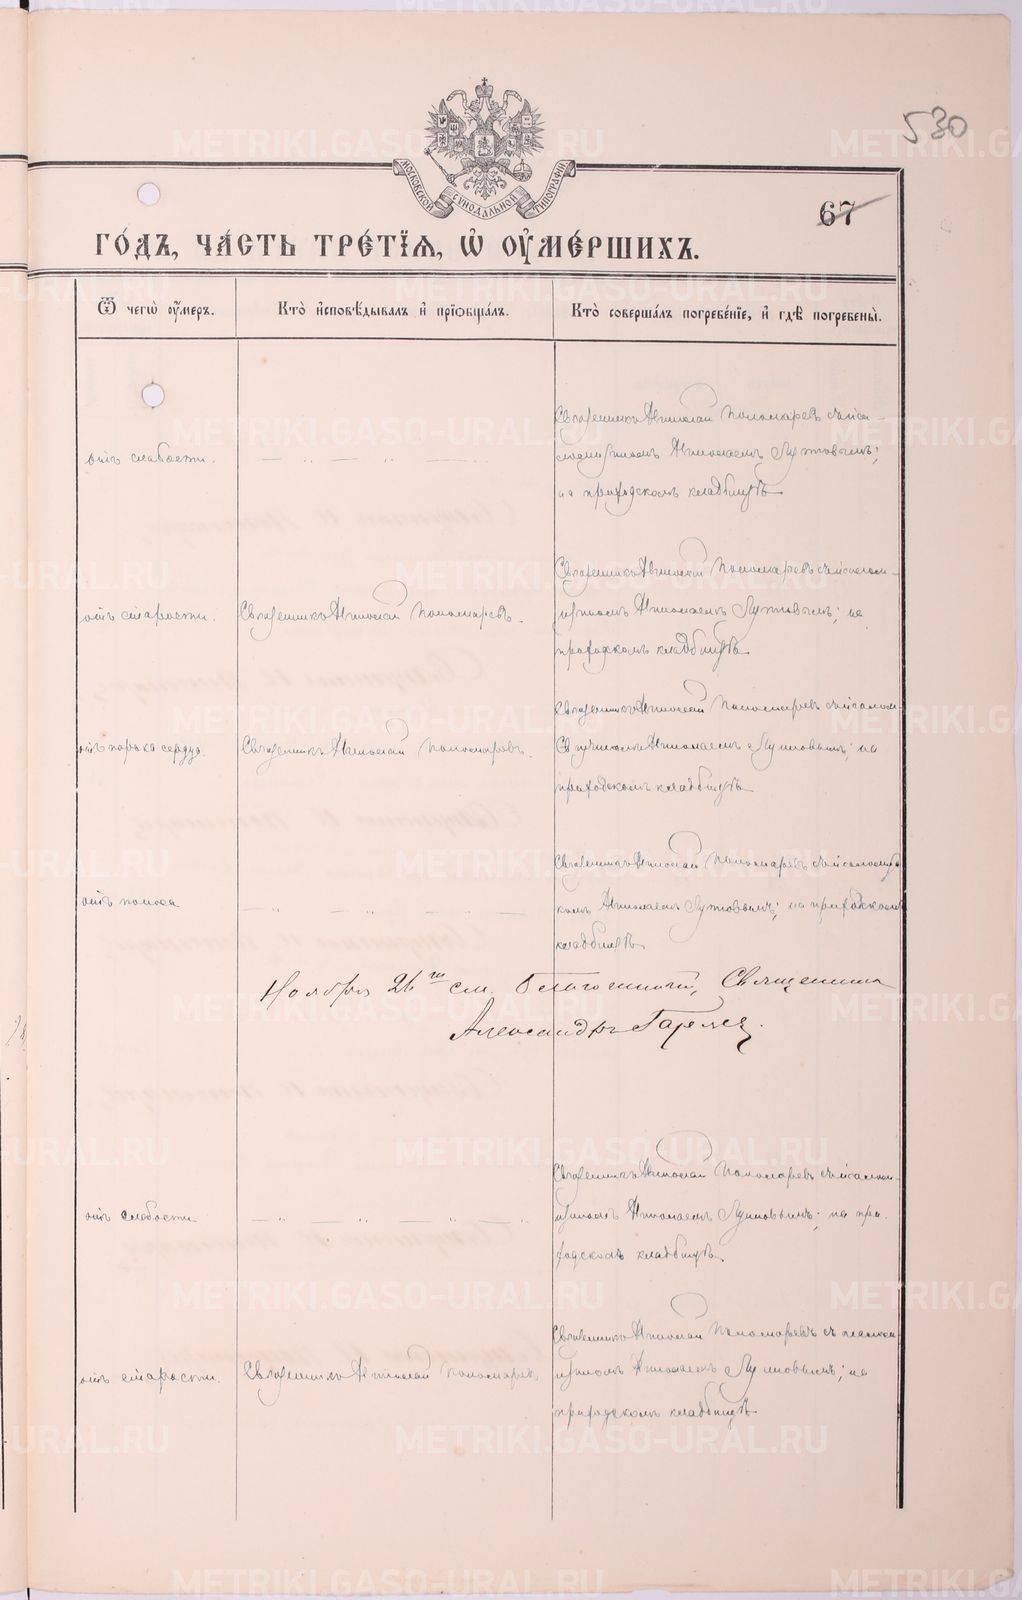 530
МОСКОВСКОЙ СУНОДАЛЬНОЙ ТИПОГРАФІИ
67
ГО́ДЪ, ЧА́СТЬ ТРЕ́ТЇѦ, Ѽ ОУ҆МЕ́РШИХЪ.
Ѿ чегѡ̀ оу҆́меръ.
Кто̀ и҆сповѣ́дывалъ и҆ прїѡбща́лъ.
Кто̀ соверша́лъ погребе́нїе, и҆ гдѣ̀ погребены̀.
отъ слабости.
Священникъ Николай Пономаревъ съ псаломщикомъ Николаемъ Лутовымъ;
на приходскомъ кладбищѣ
отъ старости.
Священникъ Николай Пономаревъ.
Священникъ Николай Пономаревъ съ псалом-
щикомъ Николаемъ Лутовымъ; на
приходскомъ кладбищѣ
отъ порока сердца.
Священникъ Николай Пономаревъ.
Священникъ Николай Пономаревъ съ псалом-
Николаемъ Лутовымъ; на
приходскомъ кладбищѣ
отъ поноса
Священникъ Николай Пономаревъ съ псаломщи-
комъ Николаемъ Лутовымъ; на приходскомъ
кладбищѣ
Ноября 26 см. Благочинный, Священникъ
Александръ
отъ слабости
Священникъ Николай Пономаревъ съ псалом-
щикомъ Николаемъ Лутовымъ; на при-
ходскомъ кладбищѣ
отъ старости.
Священникъ Николай Пономаревъ
Священникъ Николай Пономаревъ съ псалом-
щикомъ Николаемъ Лутовымъ; на
приходскомъ кладбищѣ
METRIKI.GASO-URAL.RU